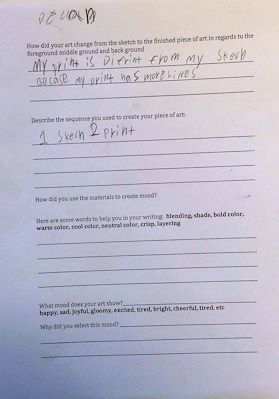 How did your art change from the sketch to the finished piece of art in regards to the
foreground middle ground and back ground
My print is Difrint from my Skech
Becase my print has more lines
Describe the sequence you used to create your piece of art:
1 Skech 2 Print
How did you use the materials to create mood?
Here are some words to help you in your writing: blending, shade, bold color,
warm color, cool color, neutral color, crisp, layering
What mood does your art show?
happy, sad, joyful, gloomy, excited, tired, bright, cheerful, tired, etc
Why did you select this mood?